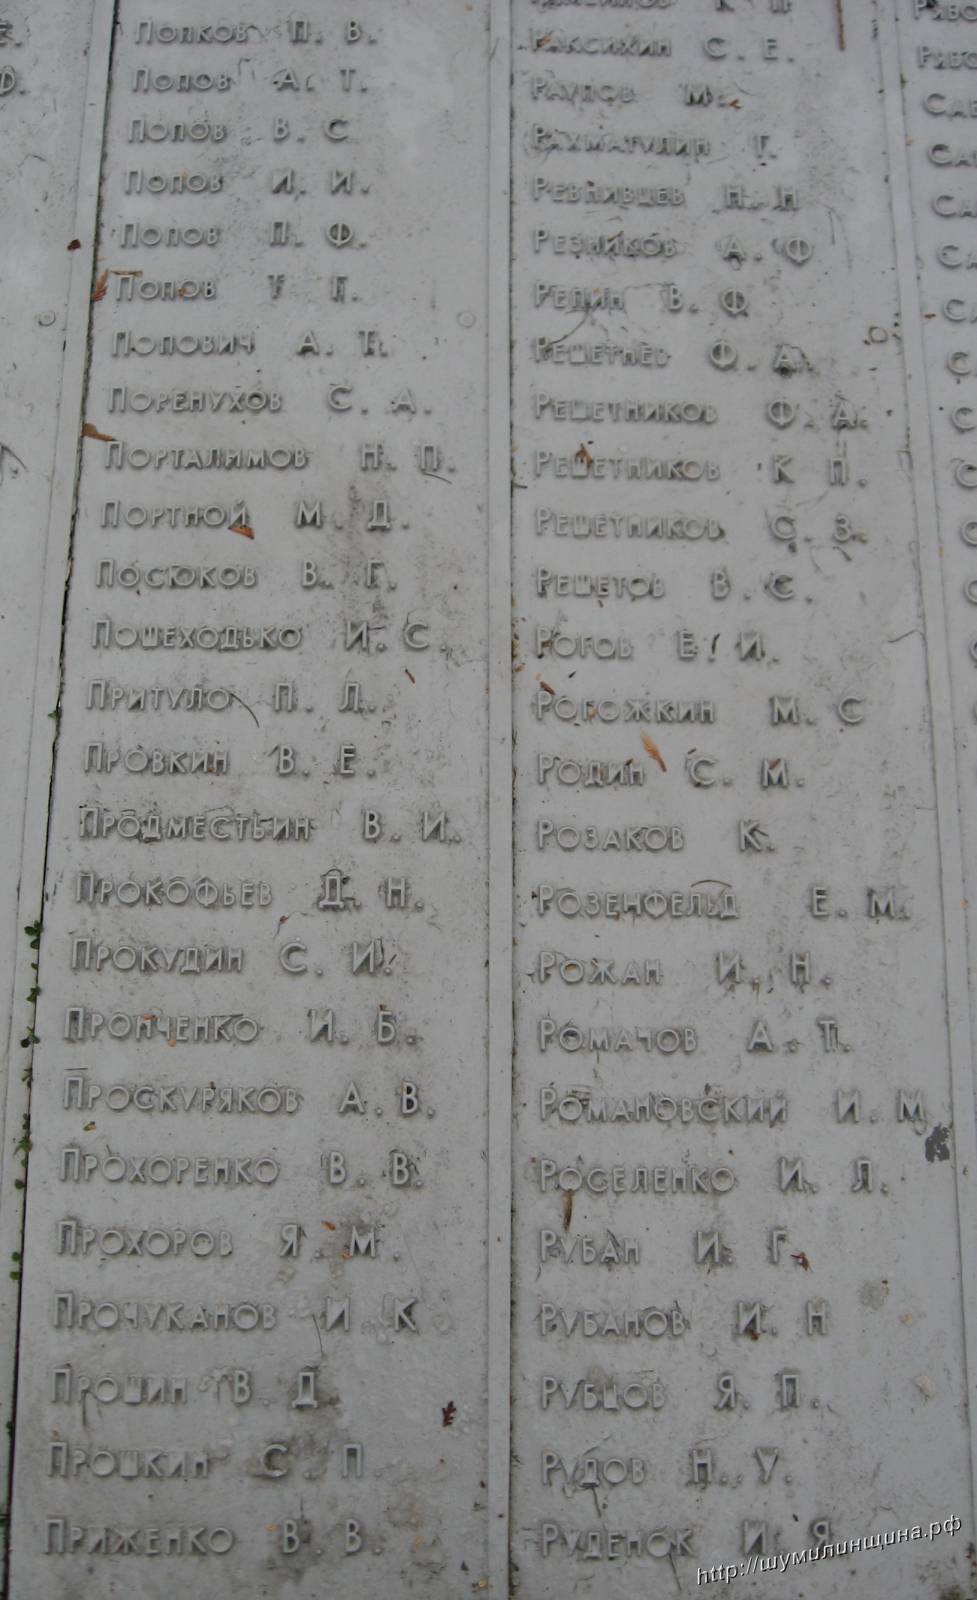 Попков П. В.
Попов А. Т.
Попов В. С
Попов И. И.
Попов П. Ф.
Попов Т Г.
Попович А. Т.
Поренухов С. А.
Порталимов Н. П.
Портной М. Д.
Посюков В. Г.
Пошеходько И. С.
Притуло П. Л.
Провкин В. Е.
Продместьин В. И.
Прокофьев Д. Н.
Прокудин С. И.
Пронченко И. Б.
Проскуряков А. В.
Прохоренко В. В.
Прохоров Я. М.
Прочуканов И К
Прошин В. Д
Прошкин С. П.
Приженко В. В.
Раксихин С. Е.
Раупов М.
Рахматулин Г.
Ревнивцев Н. Н
Резников А. Ф
Репин В. Ф
Решетнев Ф. А.
Решетников Ф. А.
Решетников К П.
Решетников С. З.
Решетов В. С.
Рогов Е. И.
Рогожкин М. С
Родин С. М.
Розаков К.
Розенфельд Е. М.
Рожан И. Н.
Ромачов А. Т.
Романовский И. М
Роселенко И. Л.
Рубан И. Г.
Рубанов И. Н
Рубцов Я. П.
Рудов Н. У.
Руденок И. Я
http://шумилинщина.рф